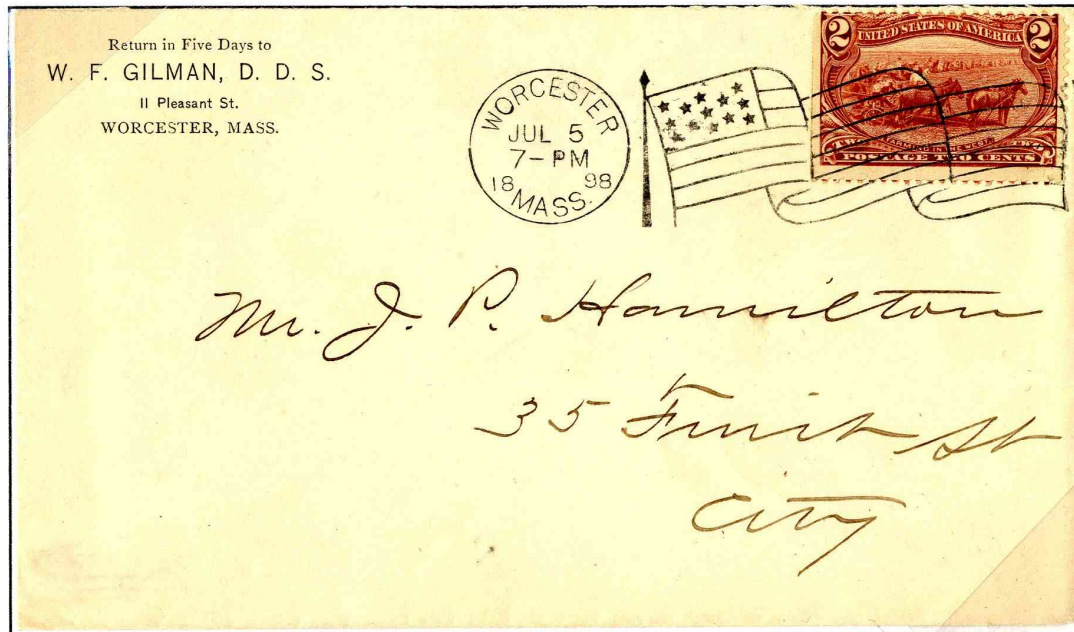 Return in Five Days to
W. F. GILMAN, D. D. S.
11 Pleasant St.
WORCESTER, MASS.
WORCESTER
JUL 5
7-PM
18 98
MASS.
2 2
UNITED STATES OF AMERICA
FARMING IN THE WEST
TWO TWO
POSTAGE TWO CENTS
Mr. J. P. Hamilton
35 Fruit St
City